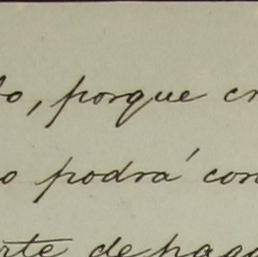 o, porque cr
o podrá con
rte de paga